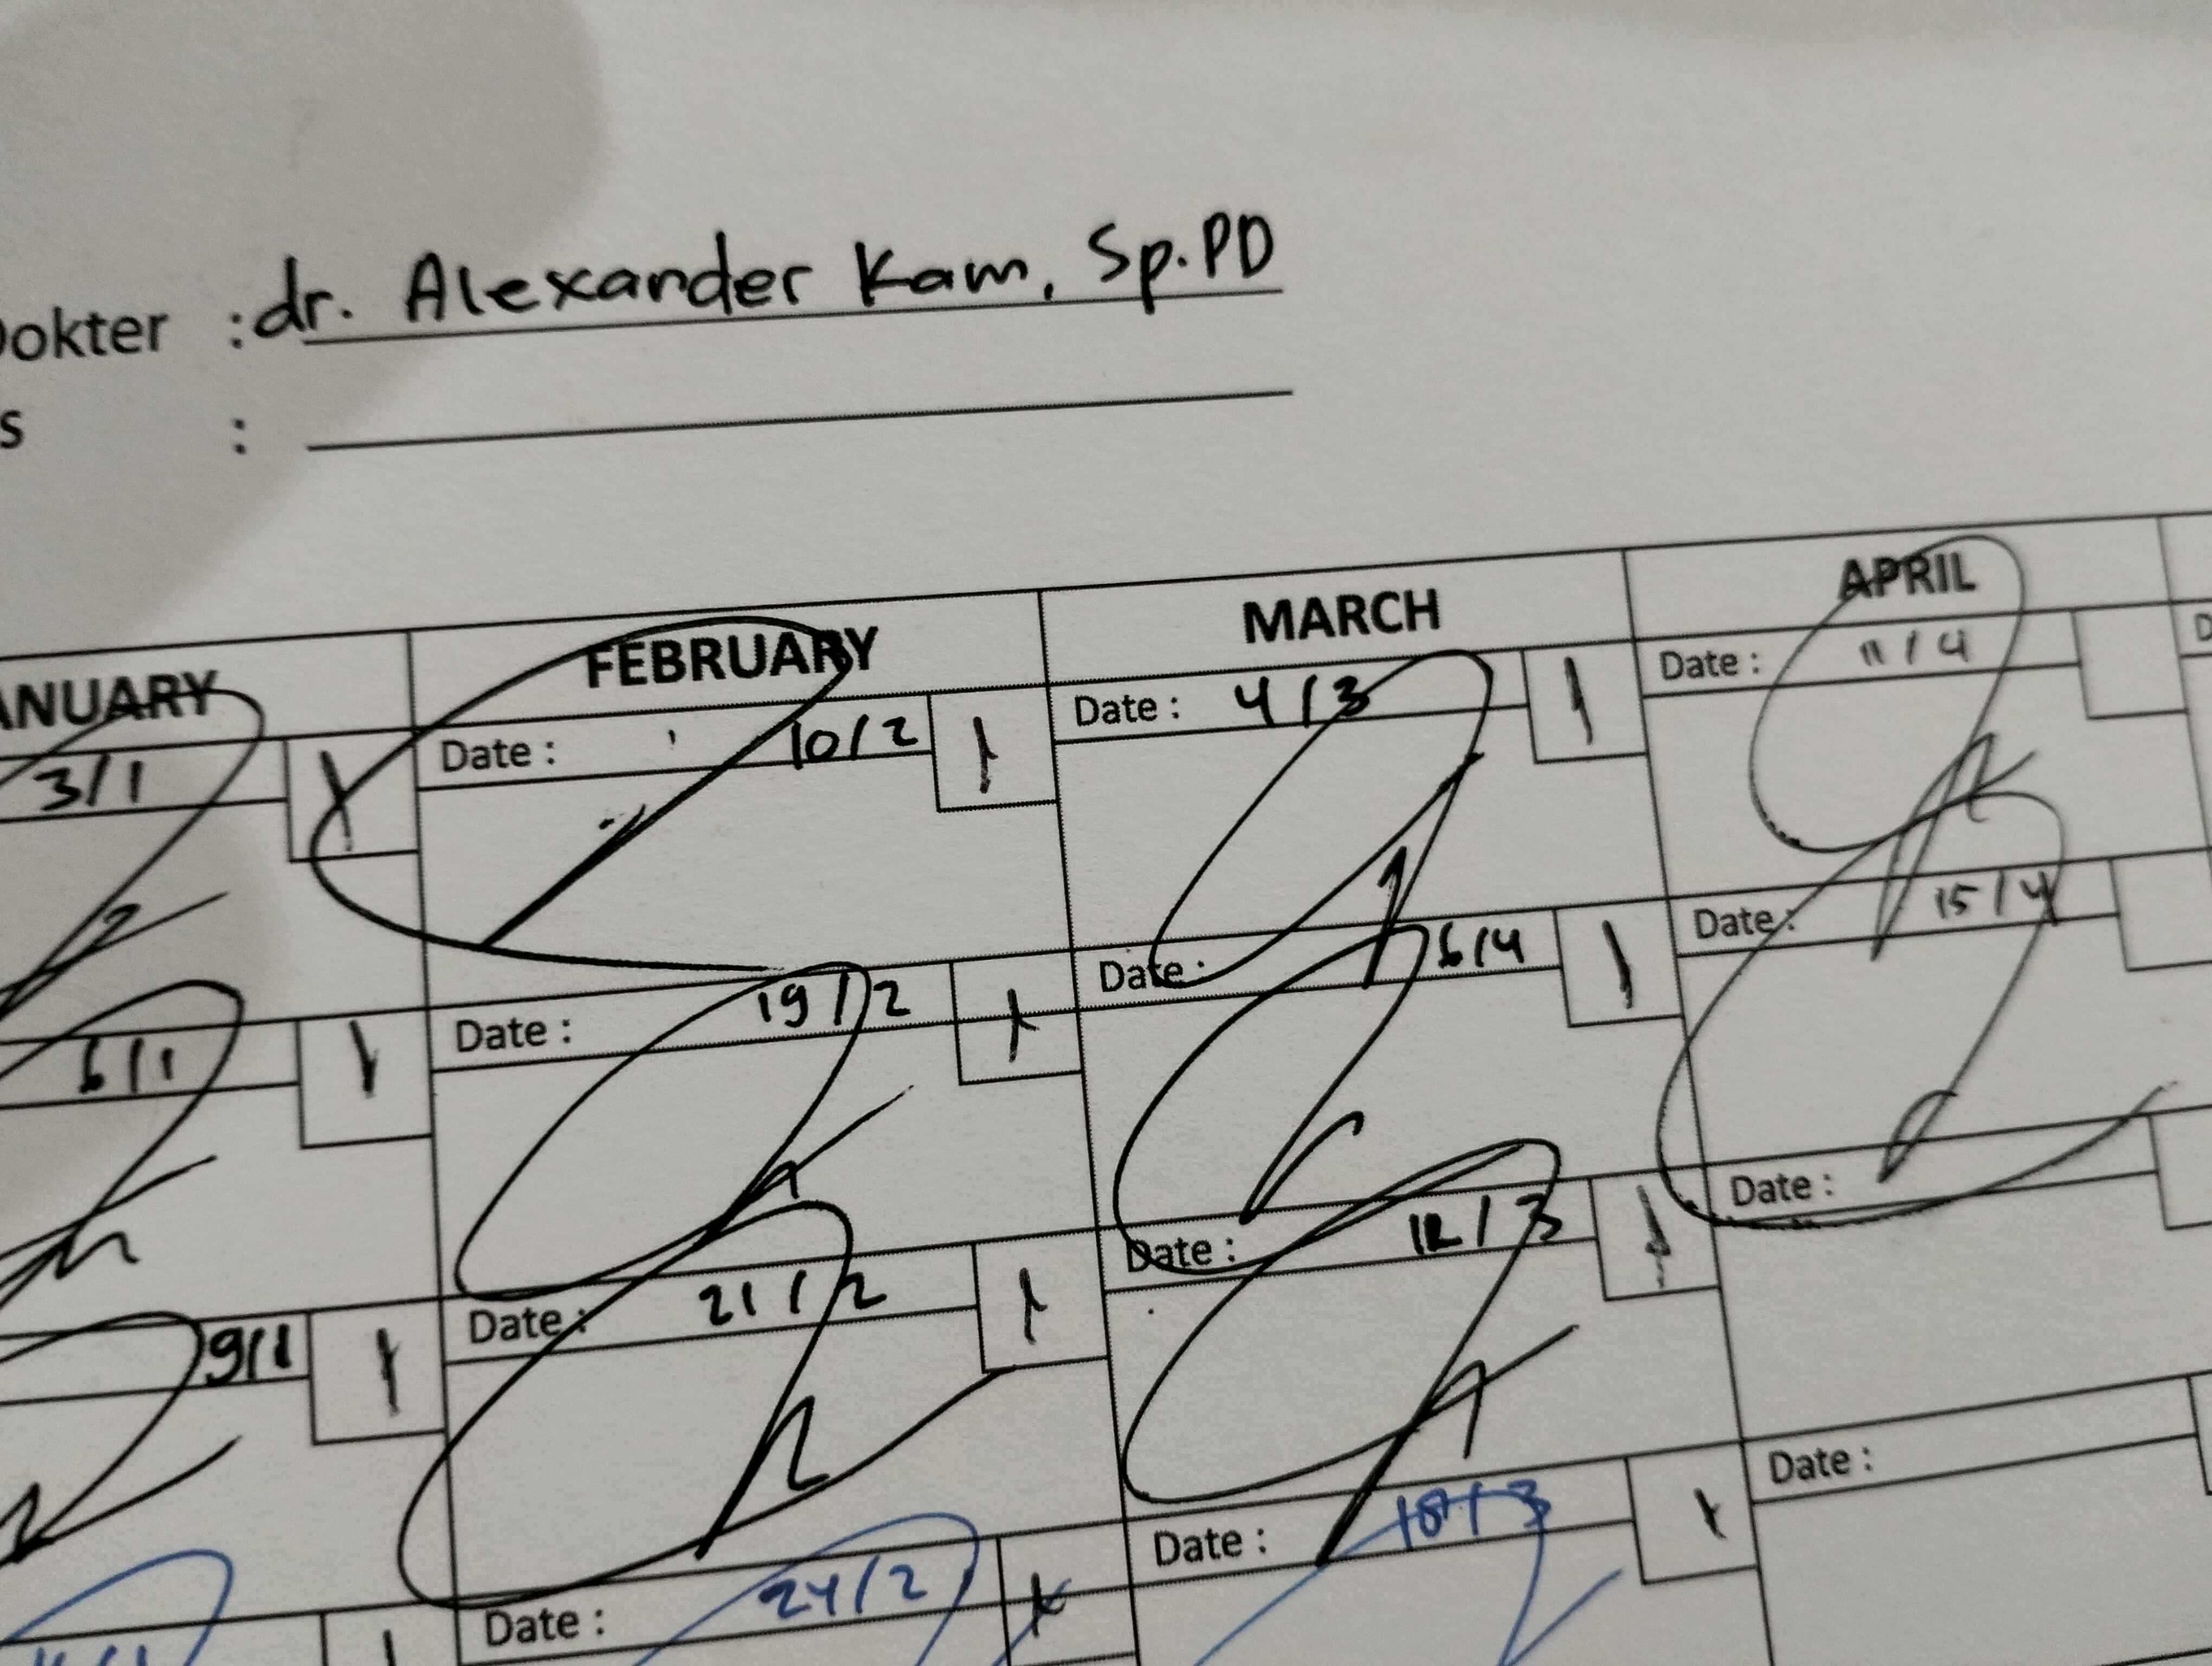 Dokter : dr. Alexander Kam, Sp.PD
s :
ANUARY FEBRUARY MARCH APRIL
3/1 Date : 10/2 Date : 4/3 Date : 11/4 D
6/1 Date : 19/2 Date : 6/4 Date : 15/4
9/1 Date : 21/2 Date : 12/3 Date :
Date : 24/2 Date : 18/3 Date :